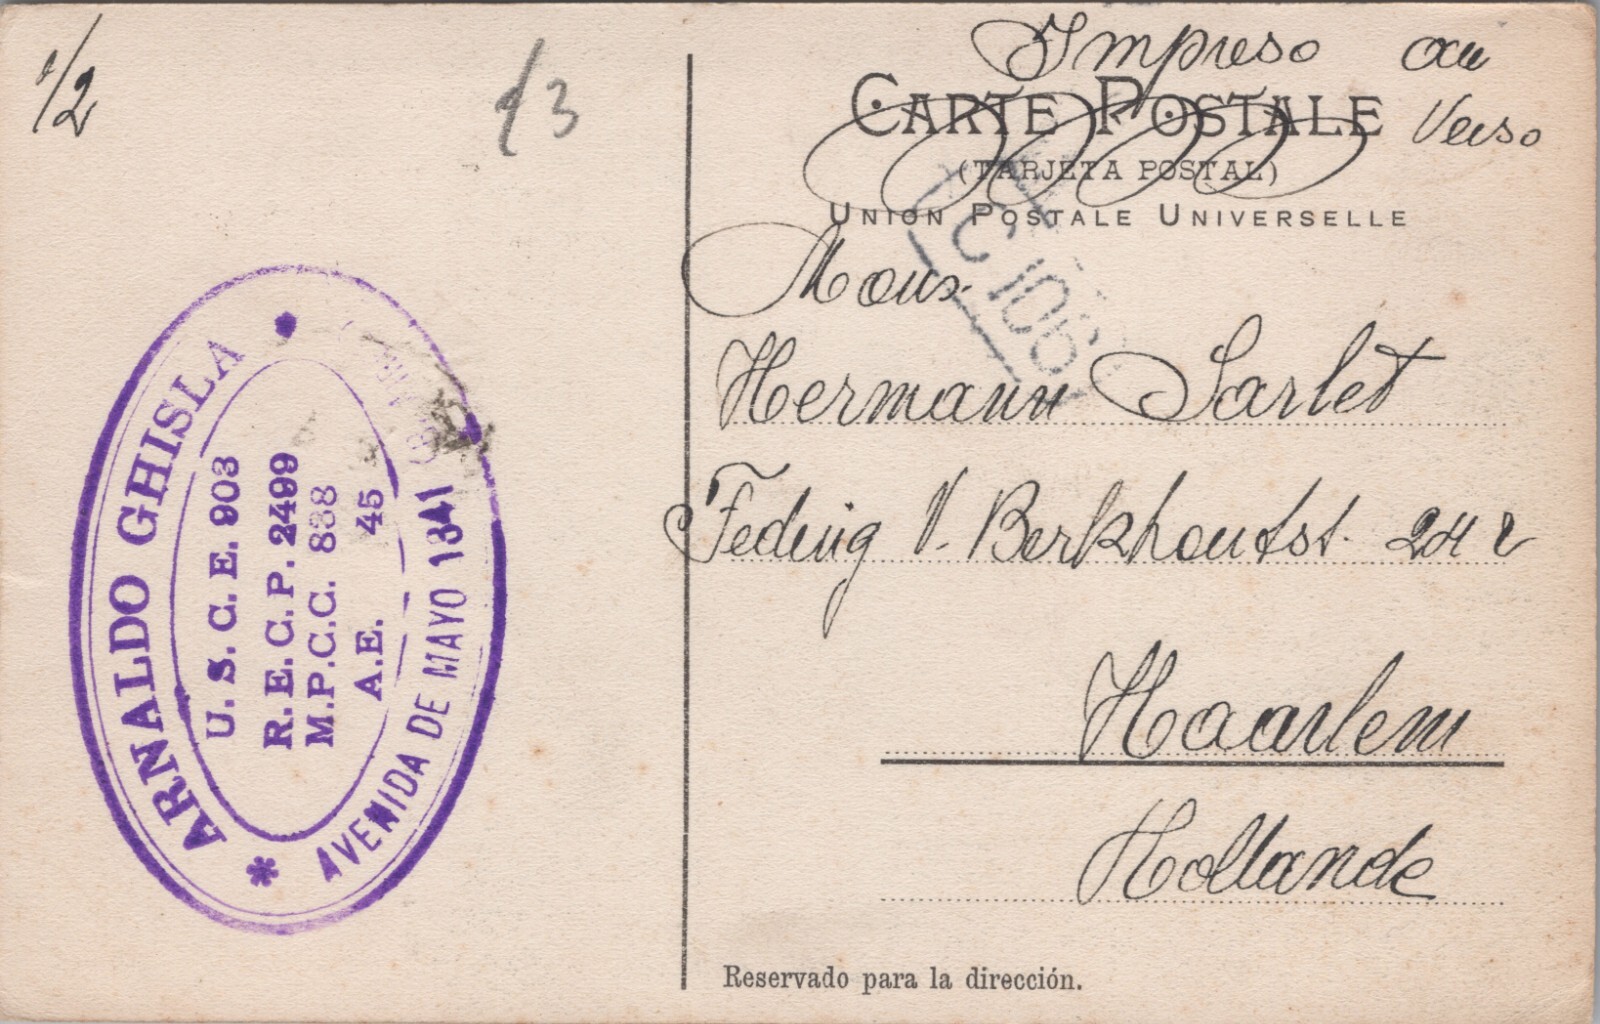 1/2
13
Impreso au
Verso
CARTE POSTALE
(TARJETA POSTAL)
UNION POSTALE UNIVERSELLE
C 106
Mons.
Hermann Sarlet
V. Berkhoutst. 24 r
Haarlem
Hollande
Reservado para la dirección.
ARNALDO GHISLA
U. S. C. E. 903
R. E. C. P. 2499
M.P.C.C. 838
A.E. 45
AVENIDA DE MAYO 1341